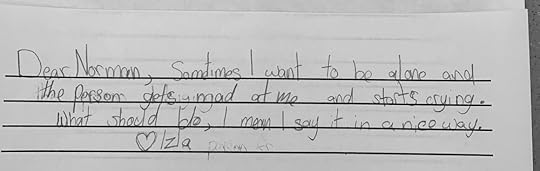 Dear Norman, Somtimes I want to be alone and
the person gets mad at me and starts crying.
What should I do, I mean I say it in a nice way.
♡ Iza